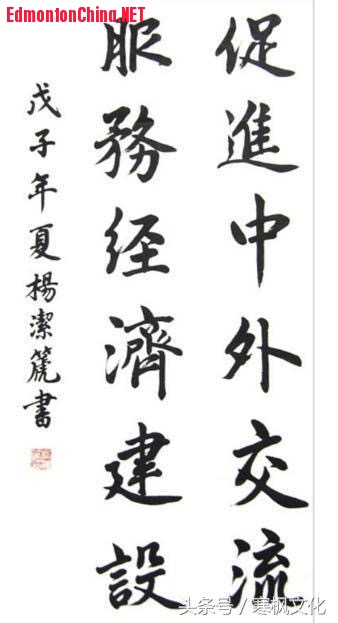 EdmontonChina.NET
促進中外交流
服務经濟建設
戊子年夏楊潔篪書
头条号／寒枫文化